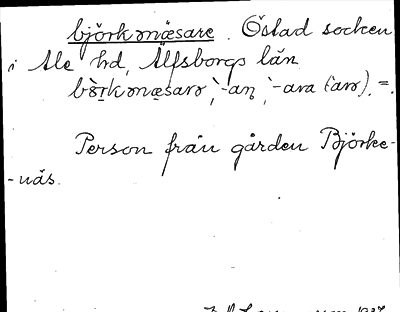 björkmæsare. Östad socken
i Ale hd, Älfsborgs län
bö̀rkmæsarə, -aṇ, -ara (arə). =.
Person från gården Björke-
-näs.